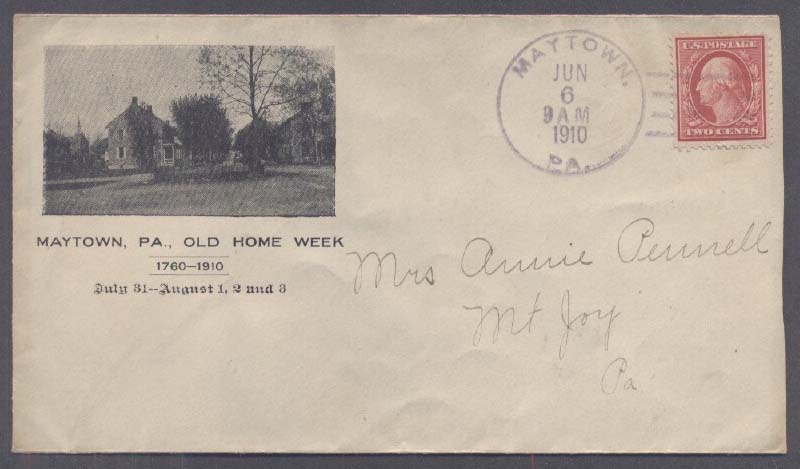 MAYTOWN, PA., OLD HOME WEEK
1760–1910
July 31--August 1, 2 and 3
MAYTOWN.
JUN
6
9 AM
1910
PA.
U.S. POSTAGE
TWO CENTS
Mrs Annie Pennell
Mt Joy
Pa